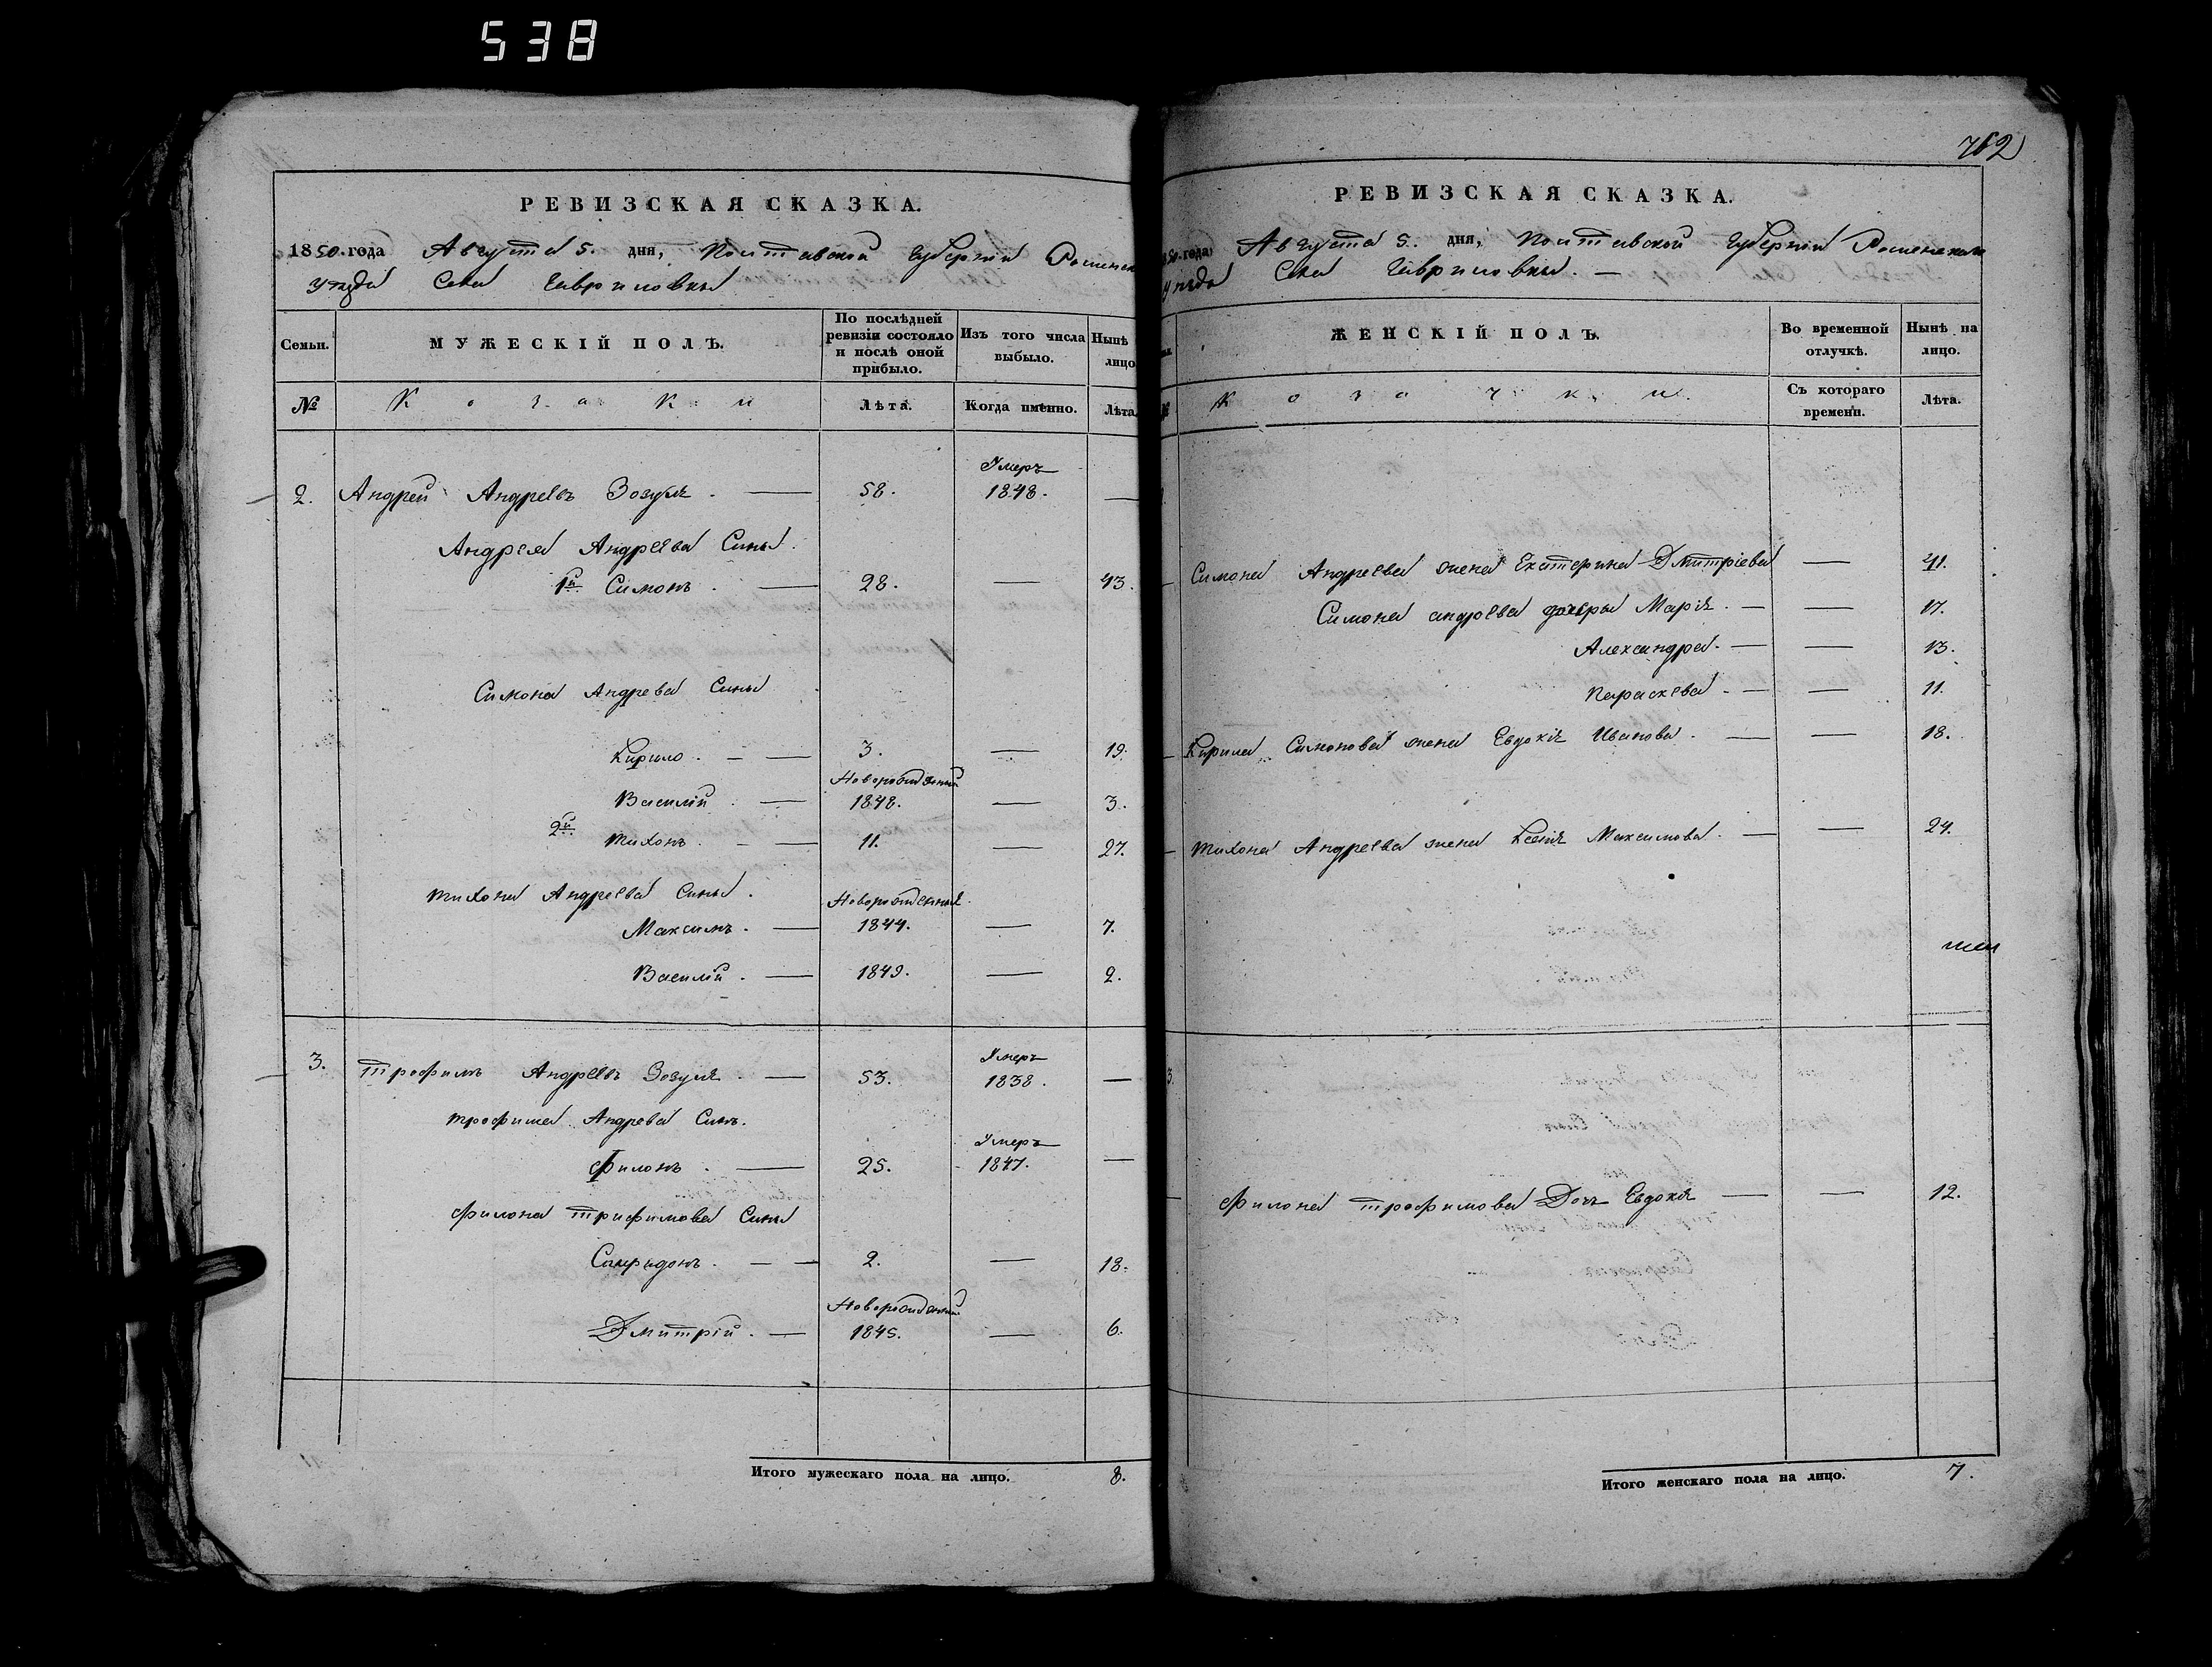 538
РЕВИЗСКАЯ СКАЗКА.
1850 года Августа 5. дня, Полтавской Губерніи Роменск
уѣзда Села Гавриловки
Семьи.
МУЖЕСКІЙ ПОЛЪ.
По послѣдней ревизіи состояло и послѣ оной прибыло.
Изъ того числа выбыло.
Нынѣ лицо
№
Козаки
Лѣта.
Когда именно.
Лѣта
2. Андрей Андреевъ Зозуля. — 58. Умеръ 1848. —
Андрея Андреева Сины.
1й Симонъ. — 28. — 43.
Симона Андрева Сины
Кирило. — — 3. — 19.
Новорожденный
Василій — 1848. — 3.
2й Тихонъ. — — 11. — 27.
Тихона Андреева Сины.
Новорожденныя
Максимъ. — 1844. — 7.
Василій. — 1849. — 2.
3. Трофимъ Андреевъ Зозуля. — 53. Умеръ 1838. —
Трофима Андрева Синъ.
Филонъ. — 25. Умеръ 1847. —
Филона Трифимова Сины
Спиридонъ. — — 2. — 18.
Новорожденный
Дмитрій. — 1845. — 6.
Итого мужескаго пола на лицо. 8.
762
РЕВИЗСКАЯ СКАЗКА.
50 года Августа 5. дня, Полтавской Губерніи Роменскаго
уѣзда Села Гавриловки. —
ЖЕНСКІЙ ПОЛЪ.
Во временной отлучкѣ.
Нынѣ на лицо.
Козачки.
Съ котораго времени.
Лѣта.
Симона Андреева жена Екатерина Дмитріева — 41.
Симона андреева дочеры Марія. — — 17.
Александра. — — 13.
Параскева. — — 11.
Кирила Симонова жена Евдокія Иванова. — — 18.
Тихона Андреева жена Ксенія Максимова. — — 24.
3.
Филона Трофимова Дочъ Евдокія — — 12.
Итого женскаго пола на лицо. 7.